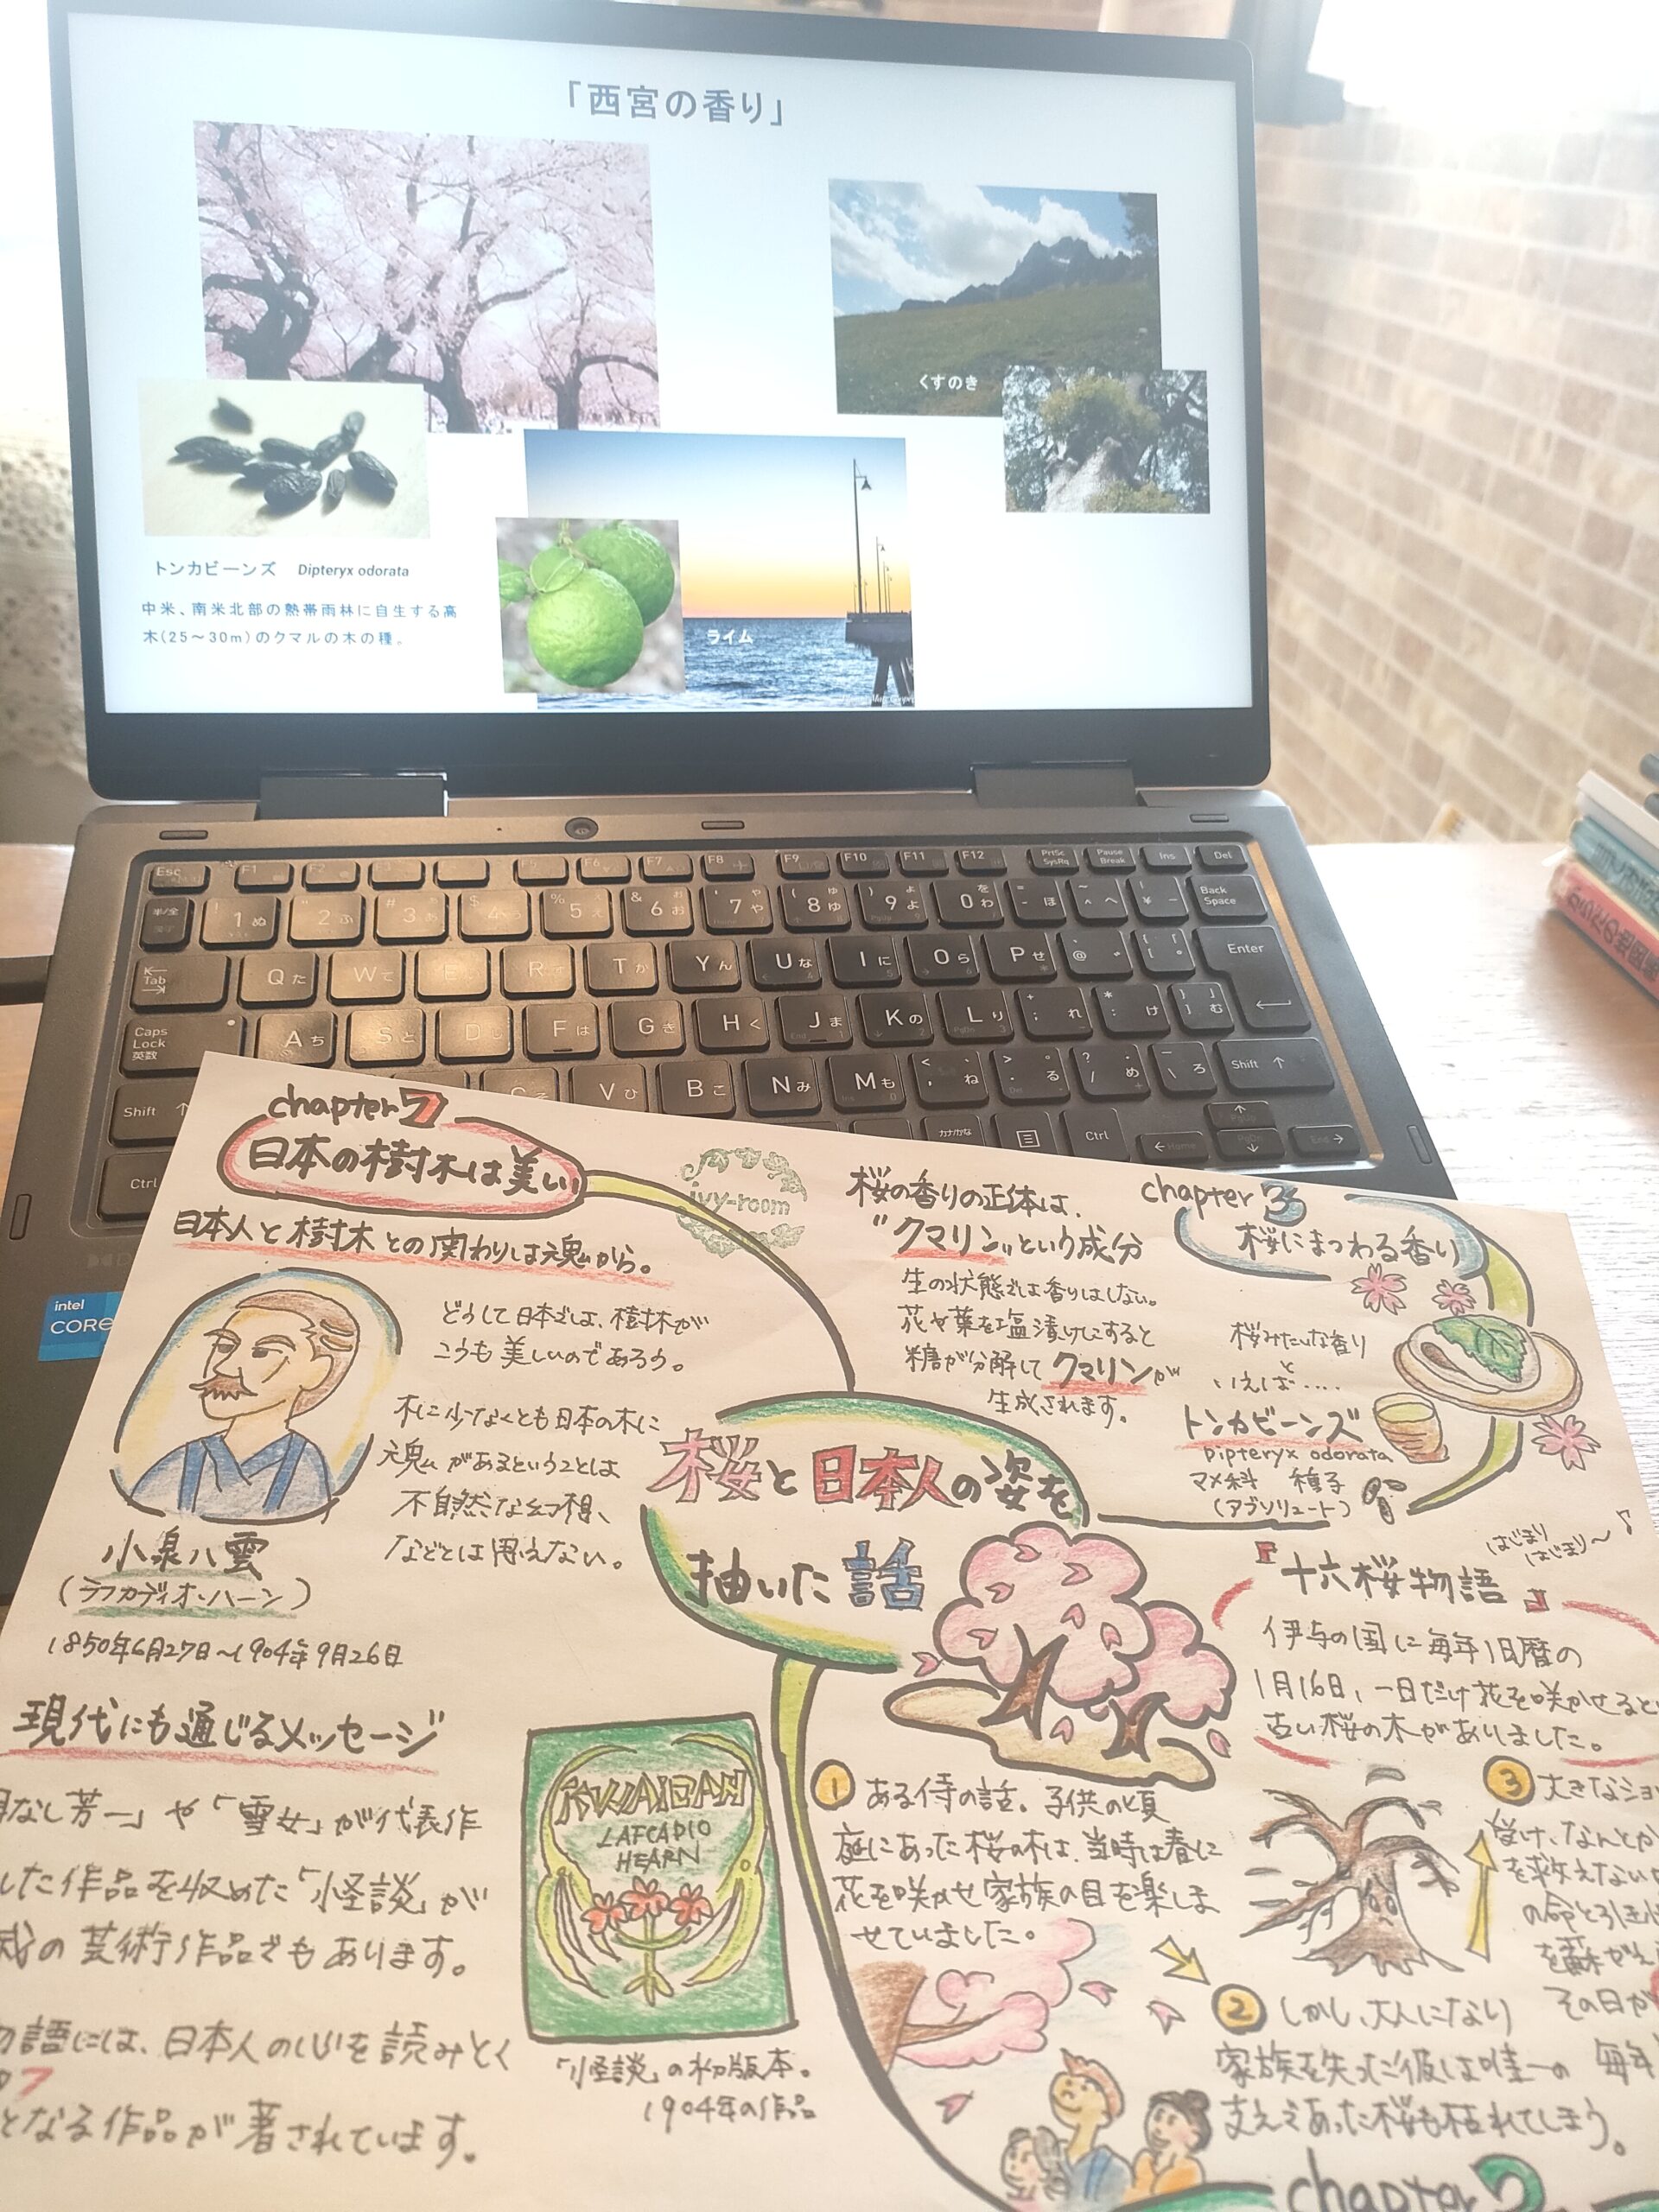 「西宮の香り」
くすのき
トンカビーンズ Dipteryx odorata
中米、南米北部の熱帯雨林に自生する高
木(25～30m)のクマルの木の種。
ライム
Esc F1 F2 F5 F6 F7 F8 F9 F10 F11 F12 PrtSc SysRq Pause Break Ins Del
半/全 1 ぬ 2 ふ 3 あ 5 え 6 お 7 や 8 ゆ 9 よ 0 わ - ほ ^ へ ¥ Back Space
Tab Q た W て E R T か Y ん U な I に O ら P せ @ Enter
Caps Lock 英数 A ち S と D F は G き H く J ま K の L り ; れ : け ] む
Shift V ひ B こ N み M も , ね . る / め \ ろ Shift
Ctrl カナ/かな Ctrl Home PgUp PgDn End
intel
CORE
chapter 1
日本の樹木は美しい
日本人と樹木との関わりは魂から。
どうして日本では、樹木が
こうも美しいのであろう。
木に少なくとも日本の木に
魂があるということは
不自然な幻想、
などとは思えない。
小泉八雲
(ラフカディオ・ハーン)
1850年6月27日～1904年9月26日
現代にも通じるメッセージ
なし芳一」や「雪女」が代表作
した作品を収めた「怪談」が
の芸術作品でもあります。
語には、日本人の心を読みとく
となる作品が著されています。
KWAIDAN
LAFCADIO
HEARN
「怪談」の初版本。
1904年の作品
ivy-room
桜と日本人の姿を
抽いた話
chapter 3
桜にまつわる香り
桜の香りの正体は、
"クマリン"という成分
生の状態では香りはしない。
花や葉を塩漬けにすると
糖が分解してクマリンが
生成されます。
桜みたいな香り
と
いえば....
トンカビーンズ
Dipteryx odorata
マメ科 種子
(アブソリュート)
はじまり
はじまり～♪
『十六桜物語』
伊予の国に毎年旧暦の
1月16日、一日だけ花を咲かせると
古い桜の木がありました。
① ある侍の話。子供の頃
庭にあった桜の木は、当時は春に
花を咲かせ家族の目を楽しま
せていました。
② しかし、大人になり
家族を失った彼は唯一の
支えであった桜も枯れてしまう。
③ 大きなショ
受け、なんとか
を救えないか
の命とひき
を蘇がえ
その日が
毎年
chapter 2